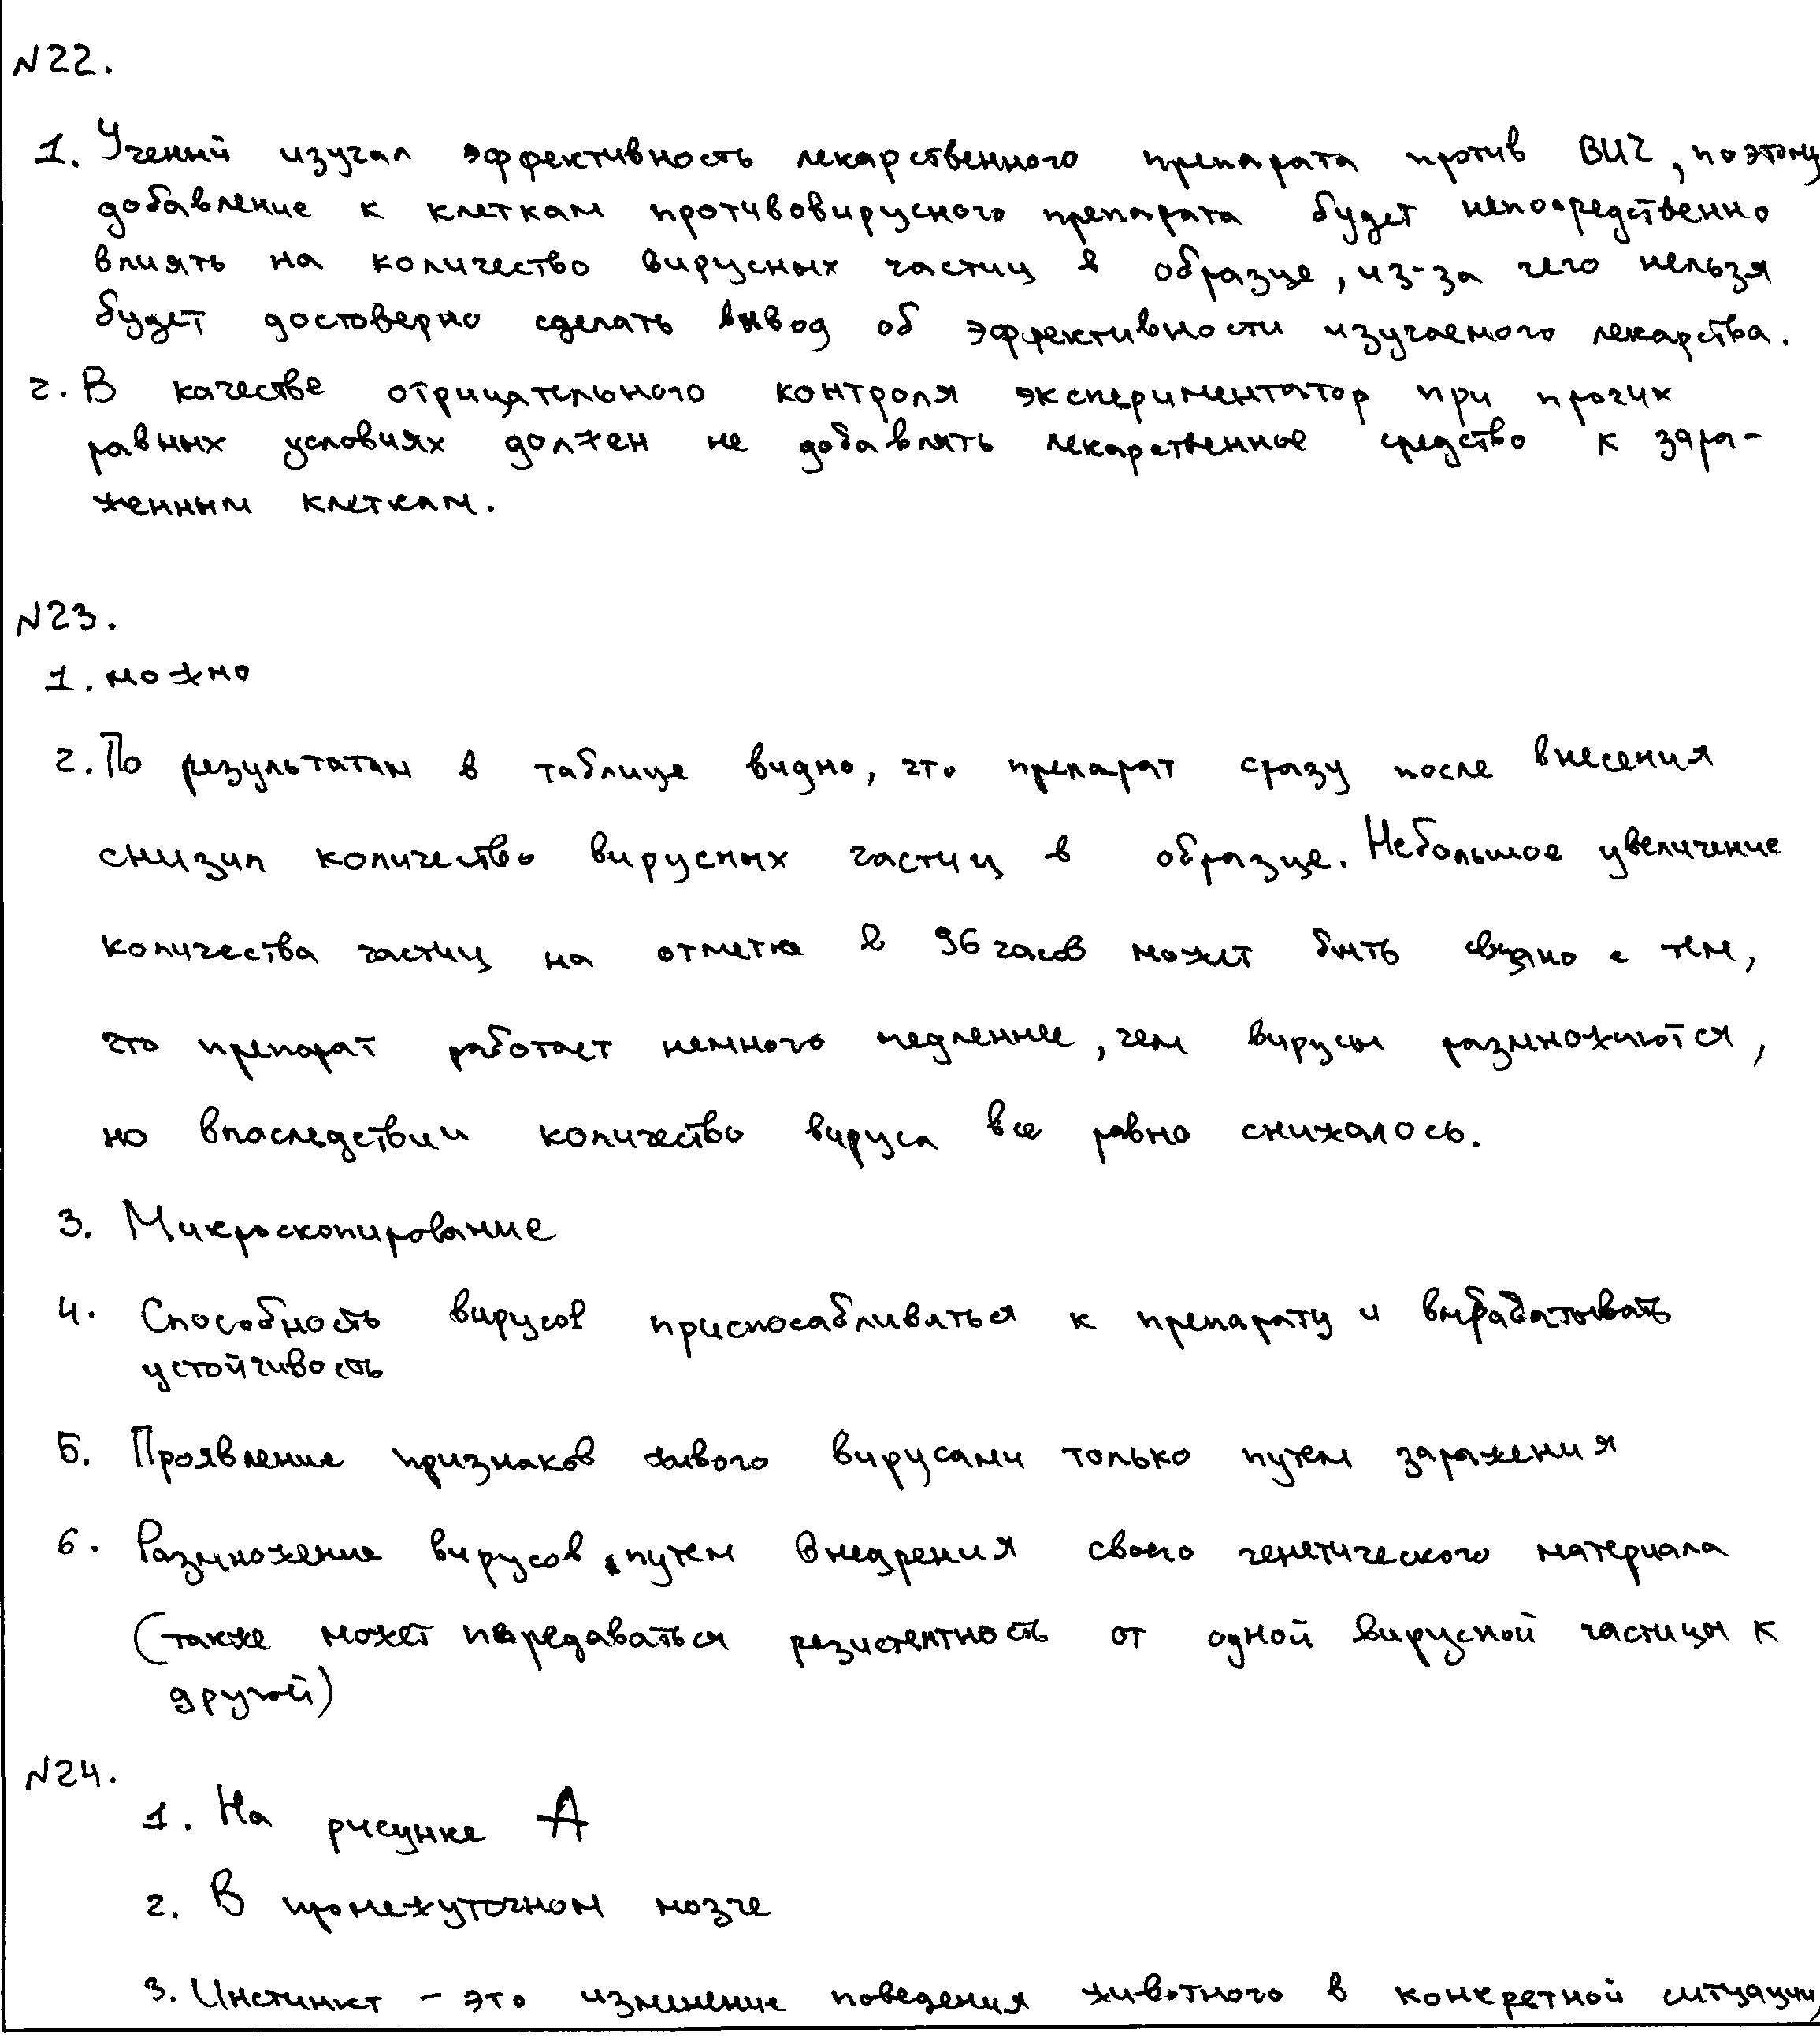 №22.
1. Ученый изучал эффективность лекарственного препарата против ВИЧ, поэтому
добавление к клеткам противовирусного препарата будет непосредственно
влиять на количество вирусных частиц в образце, из-за чего нельзя
будет достоверно сделать вывод об эффективности изучаемого лекарства.
2. В качестве отрицательного контроля экспериментатор при прочих
равных условиях должен не добавлять лекарственное средство к зара-
женным клеткам.
№23.
1. можно
2. По результатам в таблице видно, что препарат сразу после внесения
снизил количество вирусных частиц в образце. Небольшое увеличение
количества частиц на отметке в 96 часов может быть связано с тем,
что препарат работает немного медленнее, чем вирусы размножаются,
но впоследствии количество вируса все равно снижалось.
3. Микроскопирование
4. Способность вирусов приспосабливаться к препарату и вырабатывать
устойчивость
5. Проявление признаков живого вирусами только путем заражения
6. Размножение вирусов путем внедрения своего генетического материала
(также может передаваться резистентность от одной вирусной частицы к
другой)
№24.
1. На рисунке А
2. В промежуточном мозге
3. Инстинкт – это изменение поведения животного в конкретной ситуации,